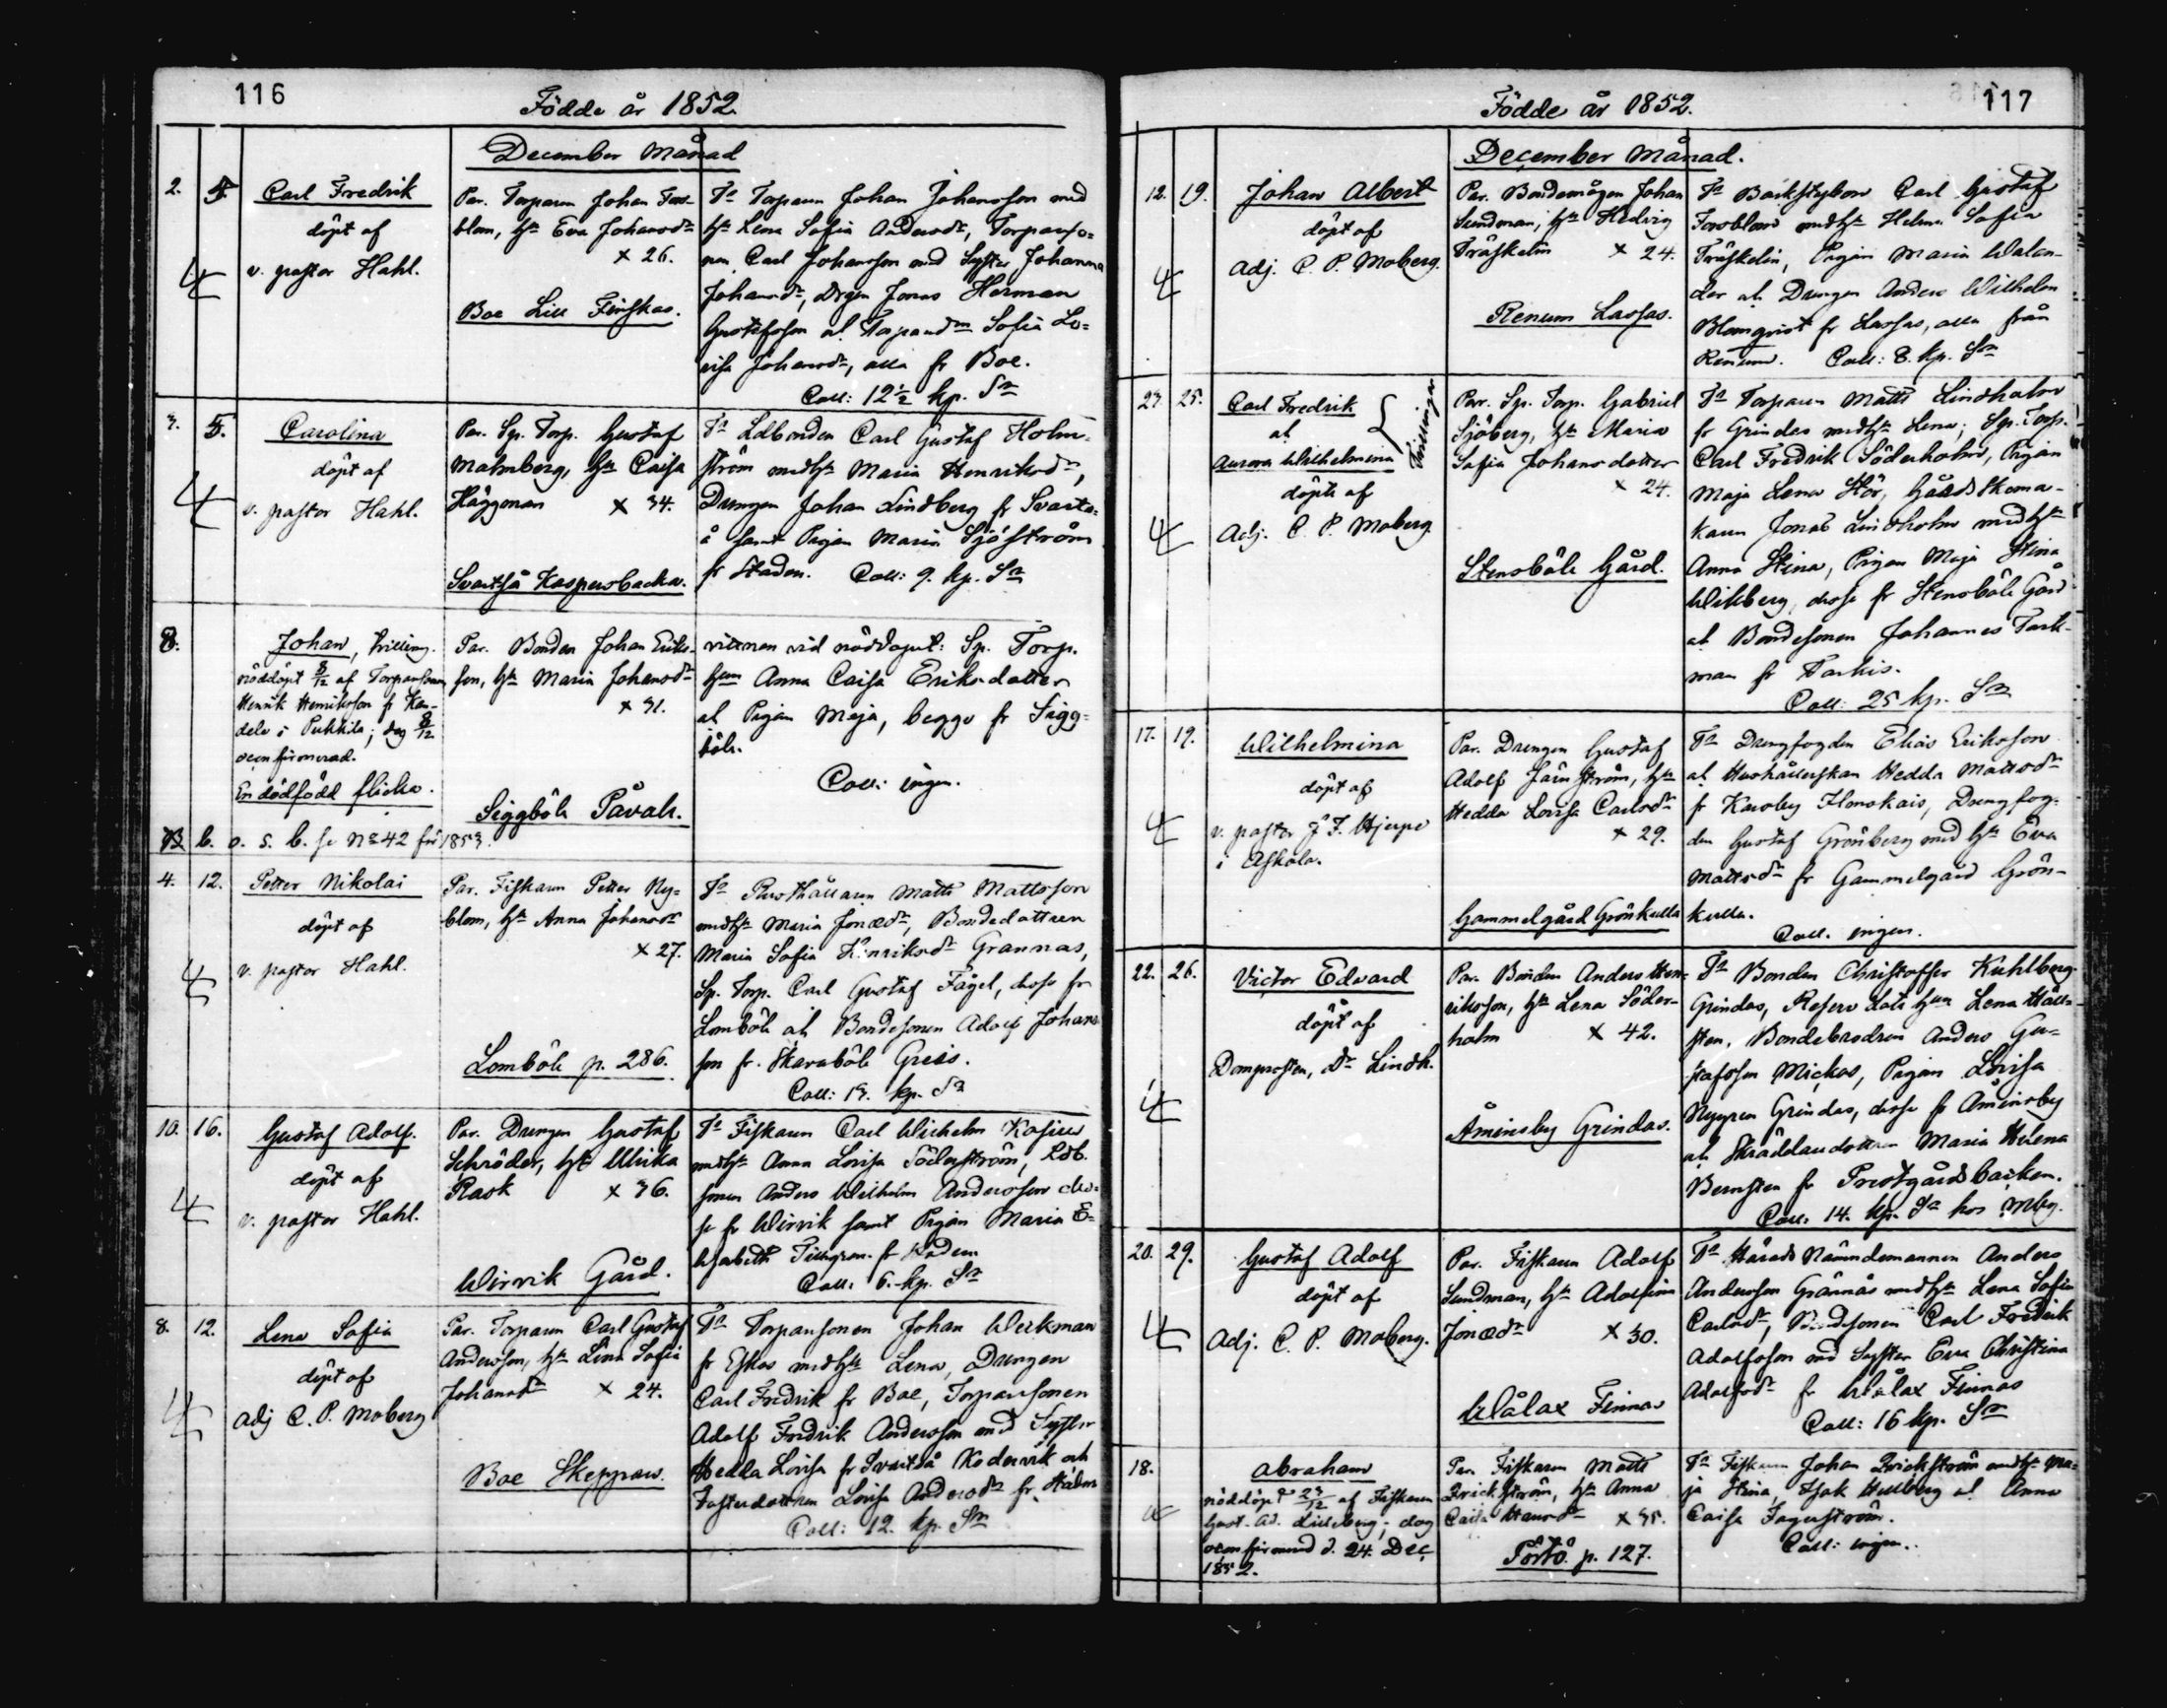 116
Födde år 1852.
December Månad
2. 5. Carl Fredrik
döpt af
v. pastor Hahl.
Par. Torparen Johan Fors-
blom, hu Eva Johansdr
x 26.
Boe Lill Finskas.
Torparen Johan Johansson med
hu Lena Sofia Andersdr, Torpareso-
nen Carl Johansson med Syster Johanna
Johansdr, Drgen Jonas Herman
Gustafsson at Sofia Lo-
visa Johansdr, alla fr Boe.
Coll: 12½ kp. Sr
3. 5. Carolina
döpt af
v. pastor Hahl.
Par. Sp. Torp. Gustaf
Malmberg, hu Caisa
Häggman x 34.
Svartså Kaspersbacka.
Ldbonden Carl Gustaf Holm-
ström med hu Maria Henriksdr,
Drengen Johan Lindberg fr Svarts-
å samt Pigan Maria Sjöström
fr Staden. Coll: 9. kp. Sr
8. Johan, tvilling.
nöddöpt 8/12 af Torparesonen
Henrik Henriksson fr Kan-
dela i Pukkila; dag 8/12
confirmerad.
En dödfödd flicka.
Par. Bonden Johan Eriks-
son, hu Maria Johansdr
x 31.
Siggböle Påvals.
vittnen vid nöddopet: Sp. Torp.
hun Anna Caisa Eriksdotter
at Pigan Maja, begge fr Sigg-
böle.
Coll: ingen.
b. o. s. b. se No 42 för 1853.
4. 12. Petter Nikolai
döpt af
v. pastor Hahl.
Par. Fiskaren Petter Ny-
blom, hu Anna Johansdr
x 27.
Lomböle p. 286.
Rusthållaren Matts Mattsson
med hu Maria Jonædr, Bondedottren
Maria Sofia Henriksdr Grannas,
Sp. Torp. Carl Gustaf Fågel, desse fr
Lomböle at Bondesonen Adolf Johans-
son fr. Skavaböle Greis.
Coll: 13. kp. Sr
10. 16. Gustaf Adolf.
döpt af
v. pastor Hahl.
Par. Drengen Gustaf
Schröder, hu Ulrika
Rask x 36.
Wirvik Gård.
Fiskaren Carl Wilhelm
med hu Anna Lovisa Söderström, Ldb.
sonen Anders Wilhelm Andersson des-
se fr Wirvik samt Pigan Maria E-
lisabeth fr
Coll: 6. kp. Sr
8. 12. Lena Sofia
döpt af
adj C. P. Moberg
Par. Torparen Carl Gustaf
Andersson, hu Lena Sofia
Johansdr x 24.
Boe Skeppars.
Torparesonen Johan Werkman
fr Eskas med hu Lena, Drengen
Carl Fredrik fr Boe, Torparesonen
Adolf Fredrik Andersson med Syster
Hedda Lovisa fr Svartså Kodervik och
Lovisa Andersdr fr
Coll: 12. kp. Sr
117
Födde år 1852.
December Månad.
12. 19. Johan Albert
döpt af
Adj. C. P. Moberg.
Par. Bondemågen Johan
Sundman, hu Hedvig
Fräskelin x 24.
Renum Lassas.
Carl Gustaf
Forsblom med hu Helena Sofia
Fräskelin, Pigan Maria Walen-
der at Drengen Anders Wilhelm
Blomqvist fr Lassas, alla från
Renum. Coll: 8. kp. Sr
23. 25. Carl Fredrik
at
Aurora Wilhelmina
Tvillingar
döpte af
Adj. C. P. Moberg.
Par. Sp. Torp. Gabriel
Sjöberg, hu Maria
Sofia Johansdotter
x 24.
Stensböle Gård.
Torparen Matts Lindholm
fr Grindas med hu Lena; Sp. Torp.
Carl Fredrik Söderholm, Pigan
Maja Lena Hör, Gårds Skoma-
karen Jonas Lindholm med hu
Anna Stina, Pigan Maja Stina
Wikberg, desse fr Stensböle Gård
at Bondesonen Johannes Tark-
man fr Tarkis.
Coll: 25 kp. Sr
17. 19. Wilhelmina
döpt af
v. pastor J F. Hjerpe
i Askola.
Par. Drengen Gustaf
Adolf Järnström, hu
Hedda Lovisa Carlsdr
x 29.
Gammelgård Grönkulla
Drengfogden Elias Eriksson
at Hushållerskan Hedda Mattsdr
fr Karsby Ilmokais, Drengfog-
den Gustaf Grönberg med hu Eva
Mattsdr fr Gammelgård Grön-
kulla.
Coll. ingen.
22. 26. Victor Edvard
döpt af
Domprosten, Dr Lindh.
Par. Bonden Anders Hen-
riksson, hu Lena Söder-
holm x 42.
Åminsby Grindas.
Bonden Christoffer Kuhlberg
Grindas, hun Lena Häll-
sten, Bondebrodren Anders Gu-
stafsson Mickas, Pigan Lovisa
Nygren Grindas, desse fr Åminsby
at Skräddaredottren Maria Helena
Bernsten fr Prestgårdsbacken.
Coll. 14. kp. Sr hos Mbg.
20. 29. Gustaf Adolf
döpt af
Adj. C. P. Moberg.
Par. Fiskaren Adolf
Sundman, hu Adolfina
Jonædr x 30.
Wålax Finnas
Härads Nämndemannen Anders
Andersson Grännäs med hu Lena Sofia
Carlsdr, Bondesonen Carl Fredrik
Adolfsson med Syster Eva Christina
Adolfsdr fr Wålax Finnas
Coll: 16 kp. Sr
18. Abraham
nöddöpt 23/12 af Fiskaren
Gust. Ad. Lilleberg; dop
confirmerad d. 24. Dec
1852.
Par. Fiskaren Matts
Brickström, hu Anna
Caisa x 35.
Pörtö p. 127.
Fiskaren Johan Brickström med hu Ma-
ja Stina, Isak Hellberg at Anna
Caisa Fagerström.
Coll: ingen.